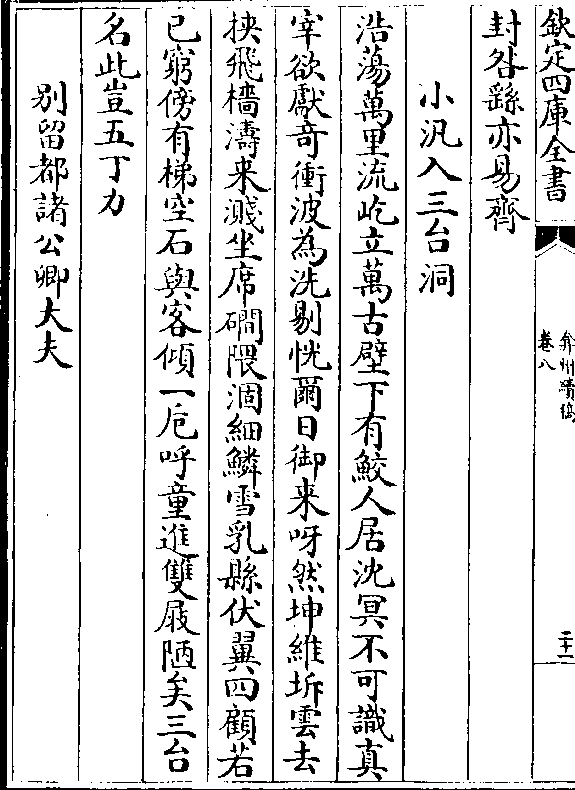 欽定四庫全書
弇州續稿
卷八
二十一
封咎繇亦易齊
小汎入三台洞
浩蕩萬里流屹立萬古壁下有鮫人居沈冥不可識真
宰欲獻奇衝波為洗剔恍爾日御来呀然坤維坼雲去
挾飛檣濤来濺坐席磵隈涸細鱗雪乳縣伏翼四顧若
已窮傍有梯空石與客傾一卮呼童進雙屐陋矣三台
名此豈五丁力
別留都諸公卿大夫